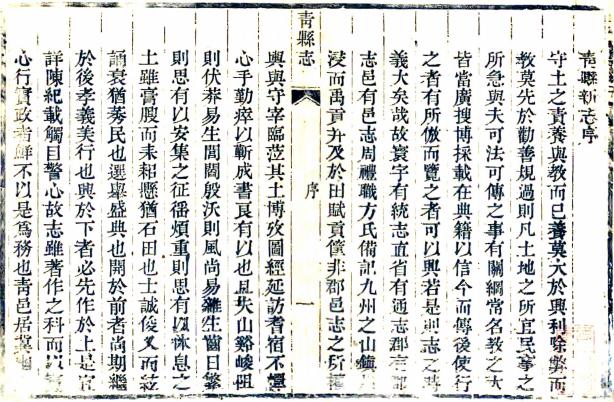 青縣新志序
守土之責養與教而已養莫大於興利除弊而
教莫先於勸善規過則凡土地之所宜民事之
所急與夫可法可傳之事有關綱常名教之大
皆當廣搜博採載在典籍以信今而傳後使行
之者有所倣而覽之者可以興若是則志之時
義大矣哉故寰宇有統志直省有通志郡有郡
志邑有邑志周禮職方氏備記九州之山鎮
浸而禹貢并及於田賦貢篚非郡邑志之所
青縣志
序
一
輿與守宰臨蒞其土博攷圖經延訪耆宿不憚
心手勤瘁以蘄成書良有以也且夫山谿峻阻
則伏莽易生閭閻殷沃則風尚易雜生齒日繁
則思有以安集之征徭煩重則思有以休息之
土雖膏腴而耒耜懸猶石田也士誠俊乂而絃
誦衰猶莠民也選舉盛典也開於前者尚期繼
於後孝義美行也興於下者必先作於上是宜
詳陳紀載觸目警心故志雖著作之科而以實
心行實政者鮮不以是爲務也青邑居